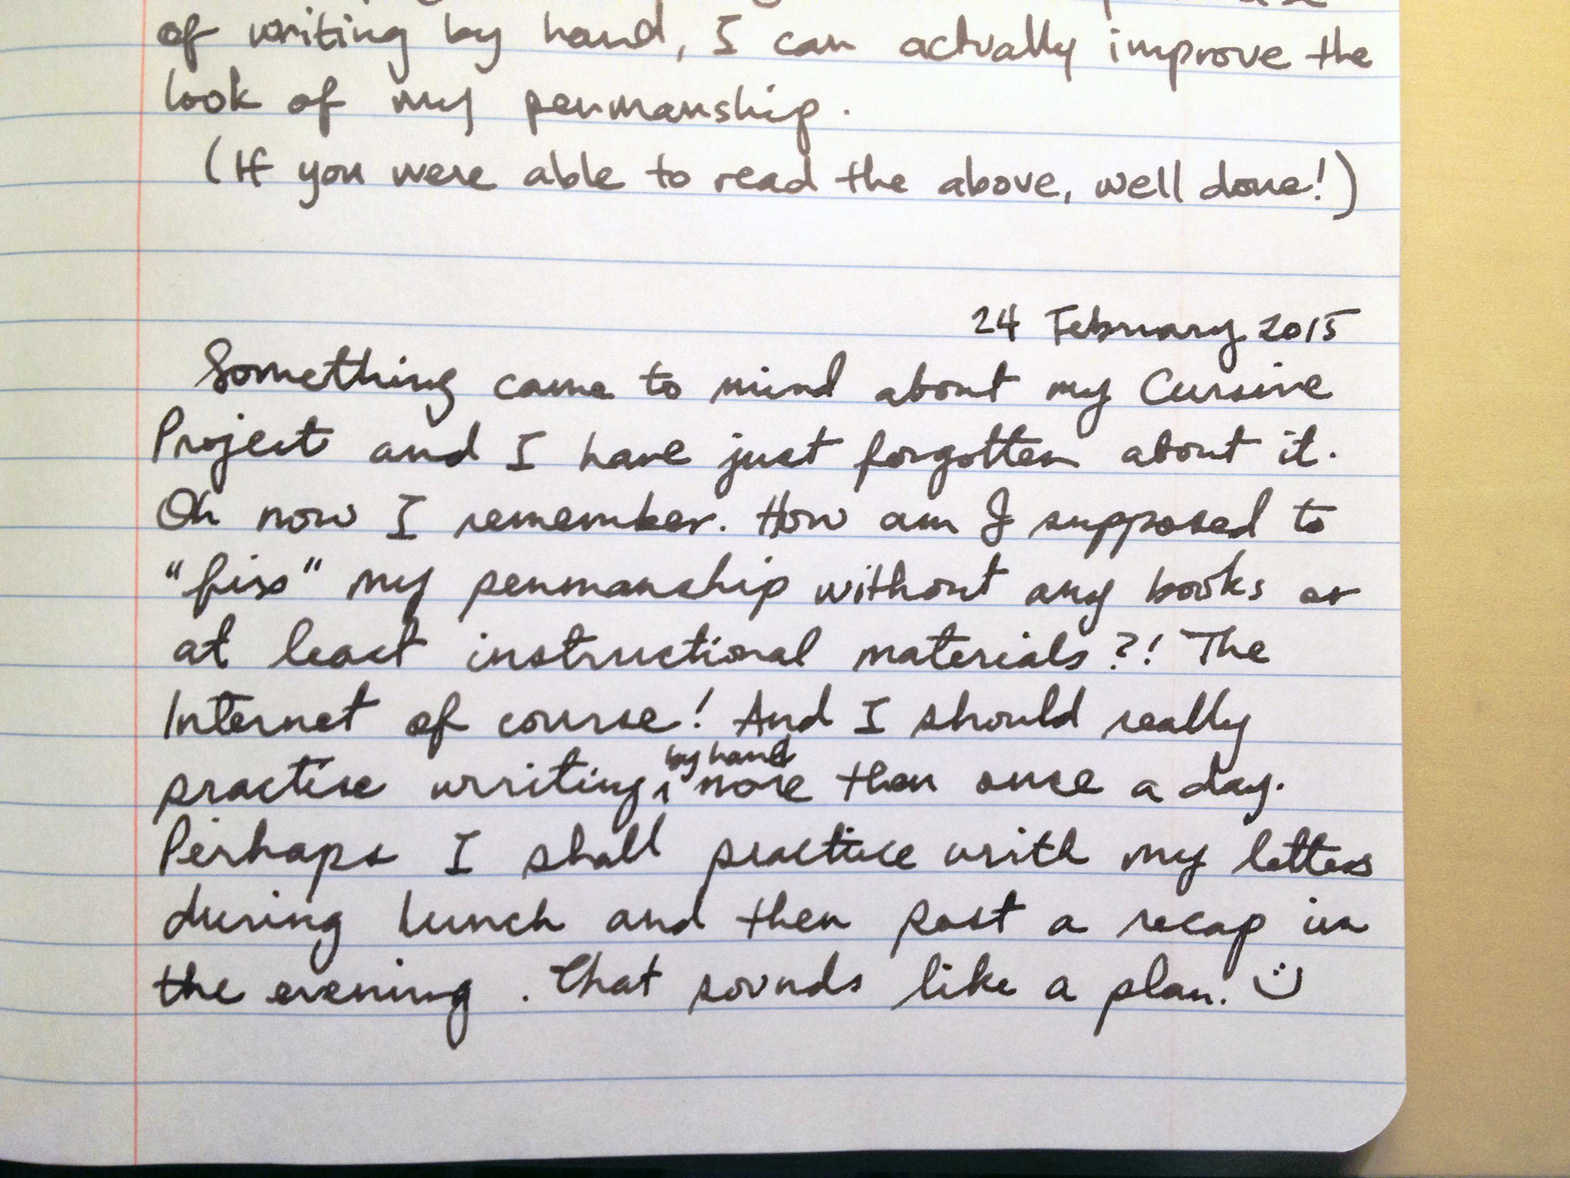 of writing by hand, I can actually improve the
look of my penmanship.
(If you were able to read the above, well done!)
24 February 2015
Something came to mind about my Cursive
Project and I have just forgotten about it.
Oh now I remember. How am I supposed to
"fix" my penmanship without any books or
at least instructional materials?! The
Internet of course! And I should really
by hand
practise writing, more than once a day.
Perhaps I shall practice with my letters
during lunch and then post a recap in
the evening. That sounds like a plan. :)